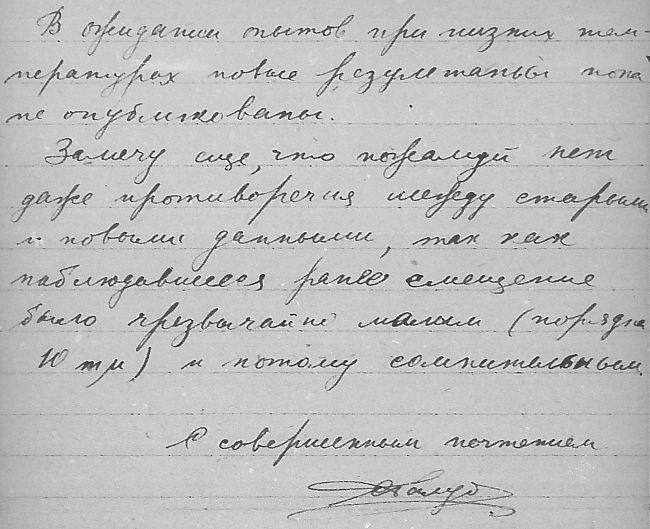 В ожидании опытов при низких тем-
пературах новые результаты пока
не опубликованы.
Замечу еще, что пожалуй нет
даже противоречия между старыми
и новыми данными, так как
наблюдавшееся ранее смещение
было чрезвычайно малым (порядка
10 mμ) и потому сомнительным.
С совершенным почтением